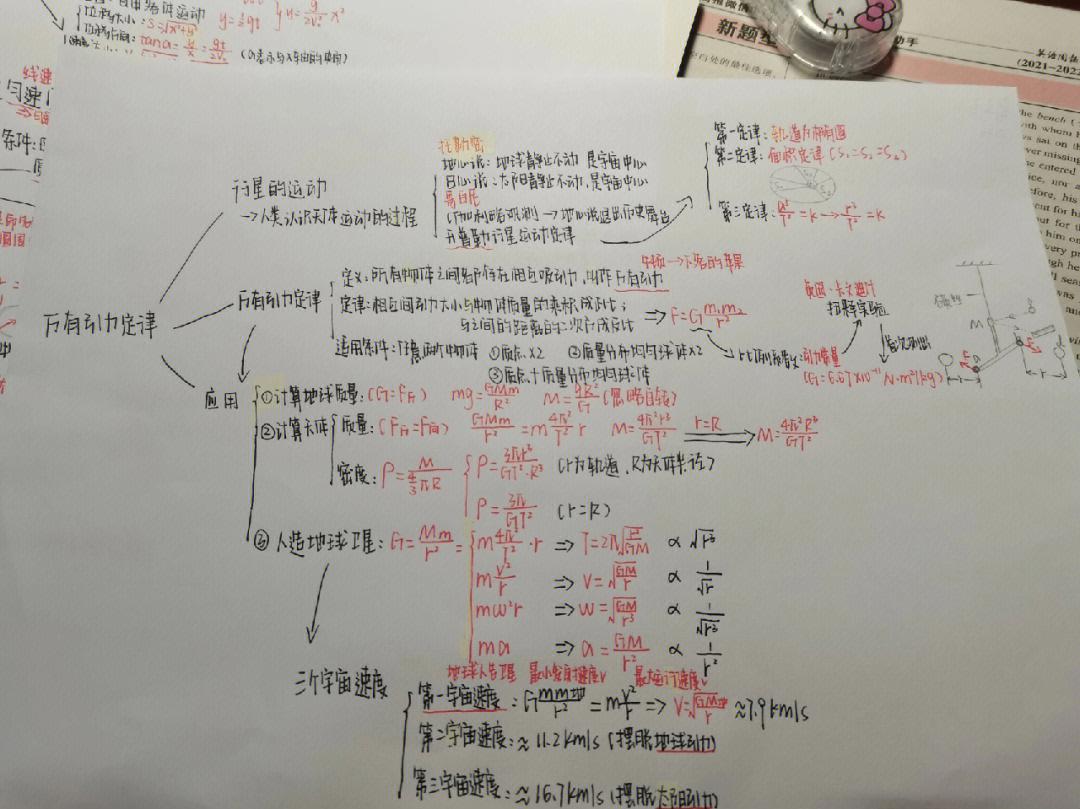 位移大小：S=√x²+y²
tanα=y/x=gt/2V₀
y=g/2V₀² x²
新题型
助手
(2021-2022
条件：
行星的运动
→人类认识天体运动的过程
托勒密
地心说：地球静止不动 是宇宙中心
日心说：太阳静止不动，是宇宙中心
哥白尼
伽利略观测→地心说退出历史舞台
开普勒行星运动定律
第一定律：轨道为椭圆
第二定律：面积定律(S₁=S₂=S₃)
第三定律：a³/T²=K→r³/T²=K
万有引力定律
万有引力定律
牛顿→下落的苹果
定义：所有物体之间都存在相互吸引力，叫作万有引力
定律：相互间引力大小与物体质量的乘积成正比；
与之间的距离的二次方成反比
⇒F=G m₁m₂/r²
适用条件：任意两个物体 ①质点×2 ②质量分布均匀球体×2
③质点+质量分布均匀球体
→比例系数：引力常量
(G=6.67×10⁻¹¹N·m²/kg)
英国·卡文迪许
扭秤实验
首次测出
M
r
应用
①计算地球质量：(G=F万) mg=GMm/R² M=gR²/G(忽略自转)
②计算天体
质量：(F万=F向) GMm/r²=m4π²/T² r M=4π²r³/GT² r=R ⇒ M=4π²R³/GT²
密度：ρ=M/(4/3πR)
ρ=3πr³/GT²·R³ (r为轨道，R为天体半径)
ρ=3π/GT² (r=R)
③人造地球卫星：G=Mm/r²=
m4π²/T²·r ⇒T=2π√r³/GM ∝√r³
mv²/r ⇒V=√GM/r ∝1/√r
mω²r ⇒ω=√GM/r³ ∝1/√r³
ma ⇒a=GM/r² ∝1/r²
三个宇宙速度
地球人造卫星 最小发射速度v 最大运行速度v
第一宇宙速度：Gmm地/r²=mv²/r⇒V=√GM地/r≈7.9km/s
第二宇宙速度：≈11.2km/s(摆脱地球引力)
第三宇宙速度：≈16.7km/s(摆脱太阳引力)